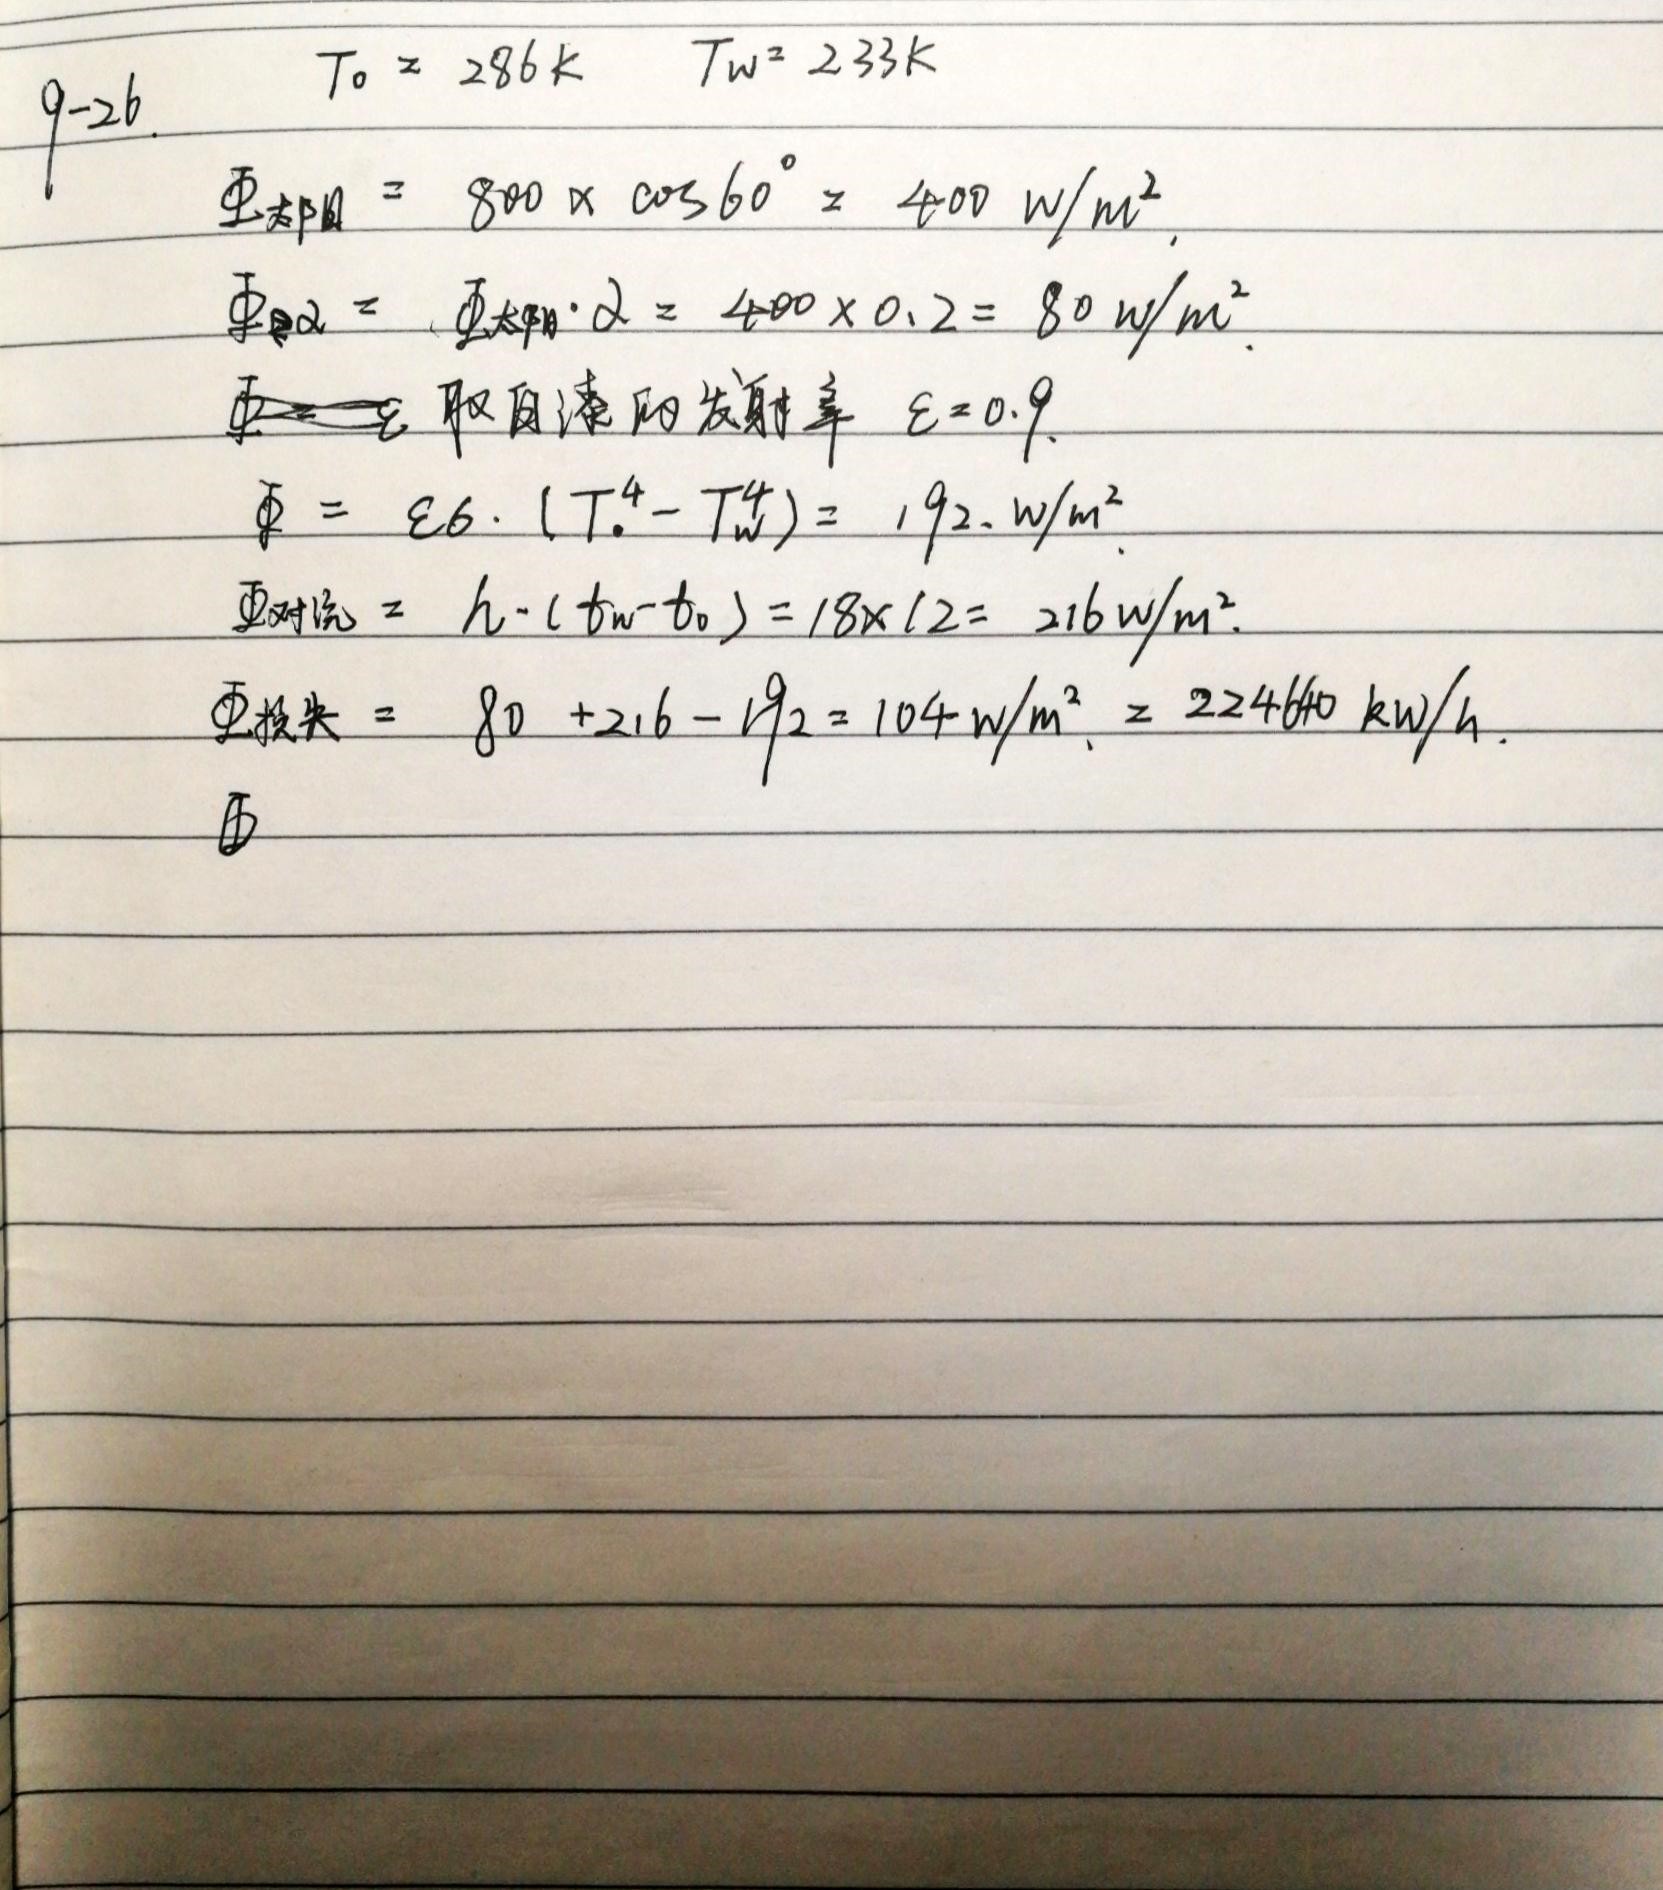 9-26. T₀ = 286K Tw = 233K
Φ太阳 = 800 × cos60° = 400 W/m².
Φα = Φ太阳·α = 400 × 0.2 = 80 W/m².
取白漆的发射率 ε=0.9.
Φ = εσ·(T₀⁴ - Tw⁴) = 192. W/m².
Φ对流 = h·(tw-t₀) = 18×12 = 216 W/m².
Φ损失 = 80 + 216 - 192 = 104 W/m². = 224640 kW/h.
Φ